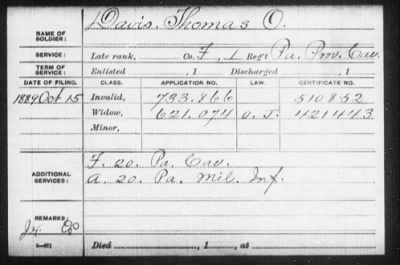 NAME OF SOLDIER: Davis, Thomas O.
SERVICE: Late rank, Co. F, 1 Reg't Pa. Prov. Cav.
TERM OF SERVICE: Enlisted , 1 Discharged , 1
DATE OF FILING. CLASS. APPLICATION NO. LAW. CERTIFICATE NO.
1889 Oct 15 Invalid, 733.866 510852
Widow, 621.074 O. S. 421443
Minor,
F. 20. Pa. Cav.
ADDITIONAL SERVICES: A. 20. Pa. Mil. Inf.
REMARKS:
Died , 1 , at